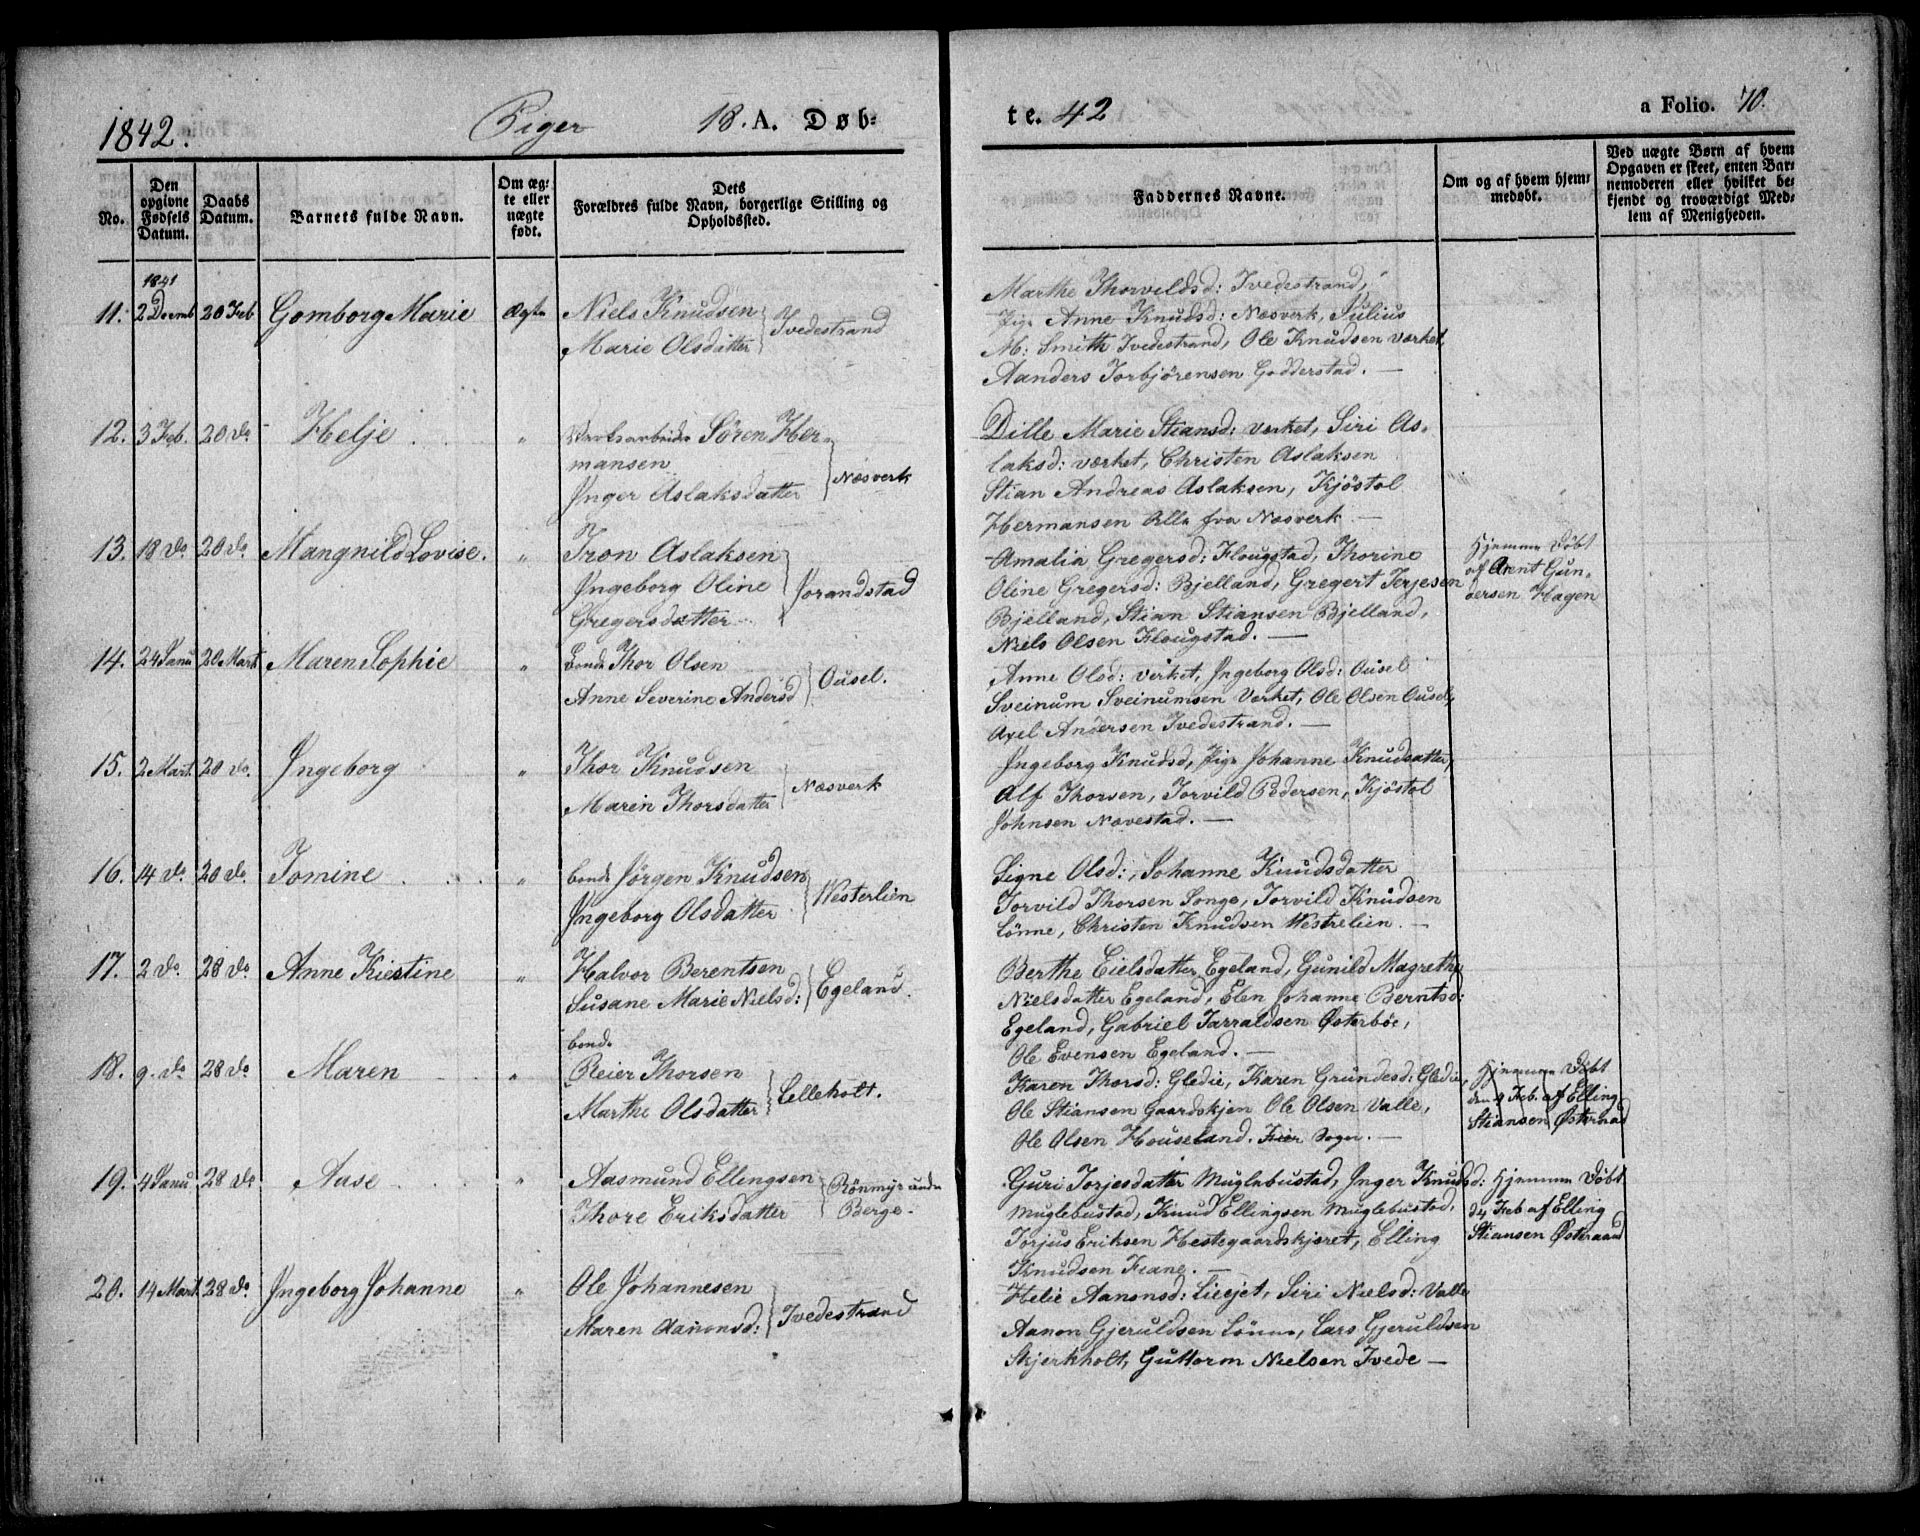 1842. Piger 18. A. Døb-
te. 42 a Folio. 70.
No.
Den opgivne Fødsels Datum.
Daabs Datum.
Barnets fulde Navn.
Om ægte eller uægte født.
Dets Forældres fulde Navn, borgerlige Stilling og Opholdssted.
Faddernes Navne.
Om og af hvem hjemmedøbt.
Ved uægte Børn af hvem Opgaven er skeet, enten Barnemoderen eller hvilket bekjendt og troværdigt Medlem af Menigheden.
1841
11. 2 Decmb 20 Feb Gomborg Marie Ægte Niels Knudsen
Marie Olsdatter } Tvedestrand
Marthe Thorvildsd: Tvedestrand,
Pige Anne Knudsd: Næsverk, Julius
M: Smith Tvedestrand, Ole Knudsen værket
Aanders Torbjörensen Godderstad. —
12. 3 Feb. 20 do Helje " Verksarbeider Sören Her-
mansen
Inger Aslaksdatter } Næsverk
Dille Marie Stiansd: verket, Siri As-
laksd: værket, Christen Aslaksen
Stian Andreas Aslaksen, Kjöstol
Hermansen Alle fra Næsverk —
13. 18 do 20 do Mangnild Lovise. " Tron Aslaksen
Ingeborg Oline
Gregersdatter } Jorandstad
Amalia Gregersd: Klougstad, Thorine
Oline Gregersd: Bjelland, Gregert Terjesen
Bjelland, Stian Stiansen Bjelland,
Niels Olsen Klougstad. —
Hjemme Döbt
af Arent Gun-
dersen Hagen
14. 24 Janu 20 Mart Maren Sophie " bonde Thor Olsen
Anne Severine Andersd } Ousel.
Anne Olsd: verket, Ingeborg Olsd: Ousel
Sveinum Sveinumsen Verket, Ole Olsen Ousel,
Axel Andersen Tvedestrand. —
15. 2 Mart. 20 do. Ingeborg " Thor Knudsen
Maren Thorsdatter } Næsverk
Ingeborg Knudsd, Pige Johanne Knudsatter,
Alf Thorsen, Torvild Pedersen, Kjöstol
Johnsen Nævestad. —
16. 14 do 20 do. Tomine " bonde Jörgen Knudsen
Ingeborg Olsdatter } Westerlien
Signe Olsd:, Johanne Knudsdatter
Torvild Thorsen Songe, Torvild Knudsen
Lönne, Christen Knudsen Westrelien. —
17. 2 do. 28 do. Anne Kiestine " Halvor Berentsen
Susane Marie Nielsd: } Egeland.
Berthe Eielsdatter Egeland, Gunild Magrethe
Nielsdatter Egeland, Elen Johanne Berntsd:
Egeland, Gabriel Tarraldsen Østerböe,
Ole Evensen Egeland. —
18. 9. do 28 do Maren " bonde
Reier Thorsen
Marthe Olsdatter } Lilleholt.
Karen Thorsd: Gledie, Karen Grundesd: Gledie,
Ole Stiansen Gaardskjen Ole Olsen Valle,
Ole Olsen Houseland. Kier Sogn. —
Hjemme Döbt
den 4 Feb. af Elling
Stiansen Østeraad
19. 4 Janu 28 do Aase " Aasmund Ellingsen
Thore Eriksdatter } Rönmyr unde
Berge.
Guri Torjesdatter Muglebustad, Inger Knudsd:
Muglebustad, Knud Ellingsen Muglebustad,
Torjus Eriksen Hestegaardskjæret, Elling
Knudsen Fiane. —
Hjemme Döbt
d 4 Feb af Elling
Stiansen Østeraad
20. 14 Mart 28 do Ingeborg Johanne " Ole Johannesen
Maren Aanonsd: } Tvedestrand
Helie Aanonsd: Lieejet, Siri Nielsd: Valle
Aanon Gjeruldsen Lönne, Lars Gjeruldsen
Skjerkholt, Guttorm Nielsen Tvede —